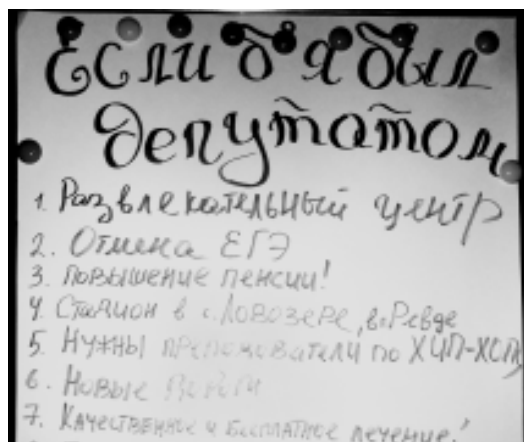 Если б я был
депутатом
1. Развлекательный центр
2. Отмена ЕГЭ
3. Повышение пенсии!
4. Стадион в с. Ловозере, в Ревде
5. Нужны преподователи по ХИП-ХОПу
6. Новые
7. Качественное и бесплатное лечение!